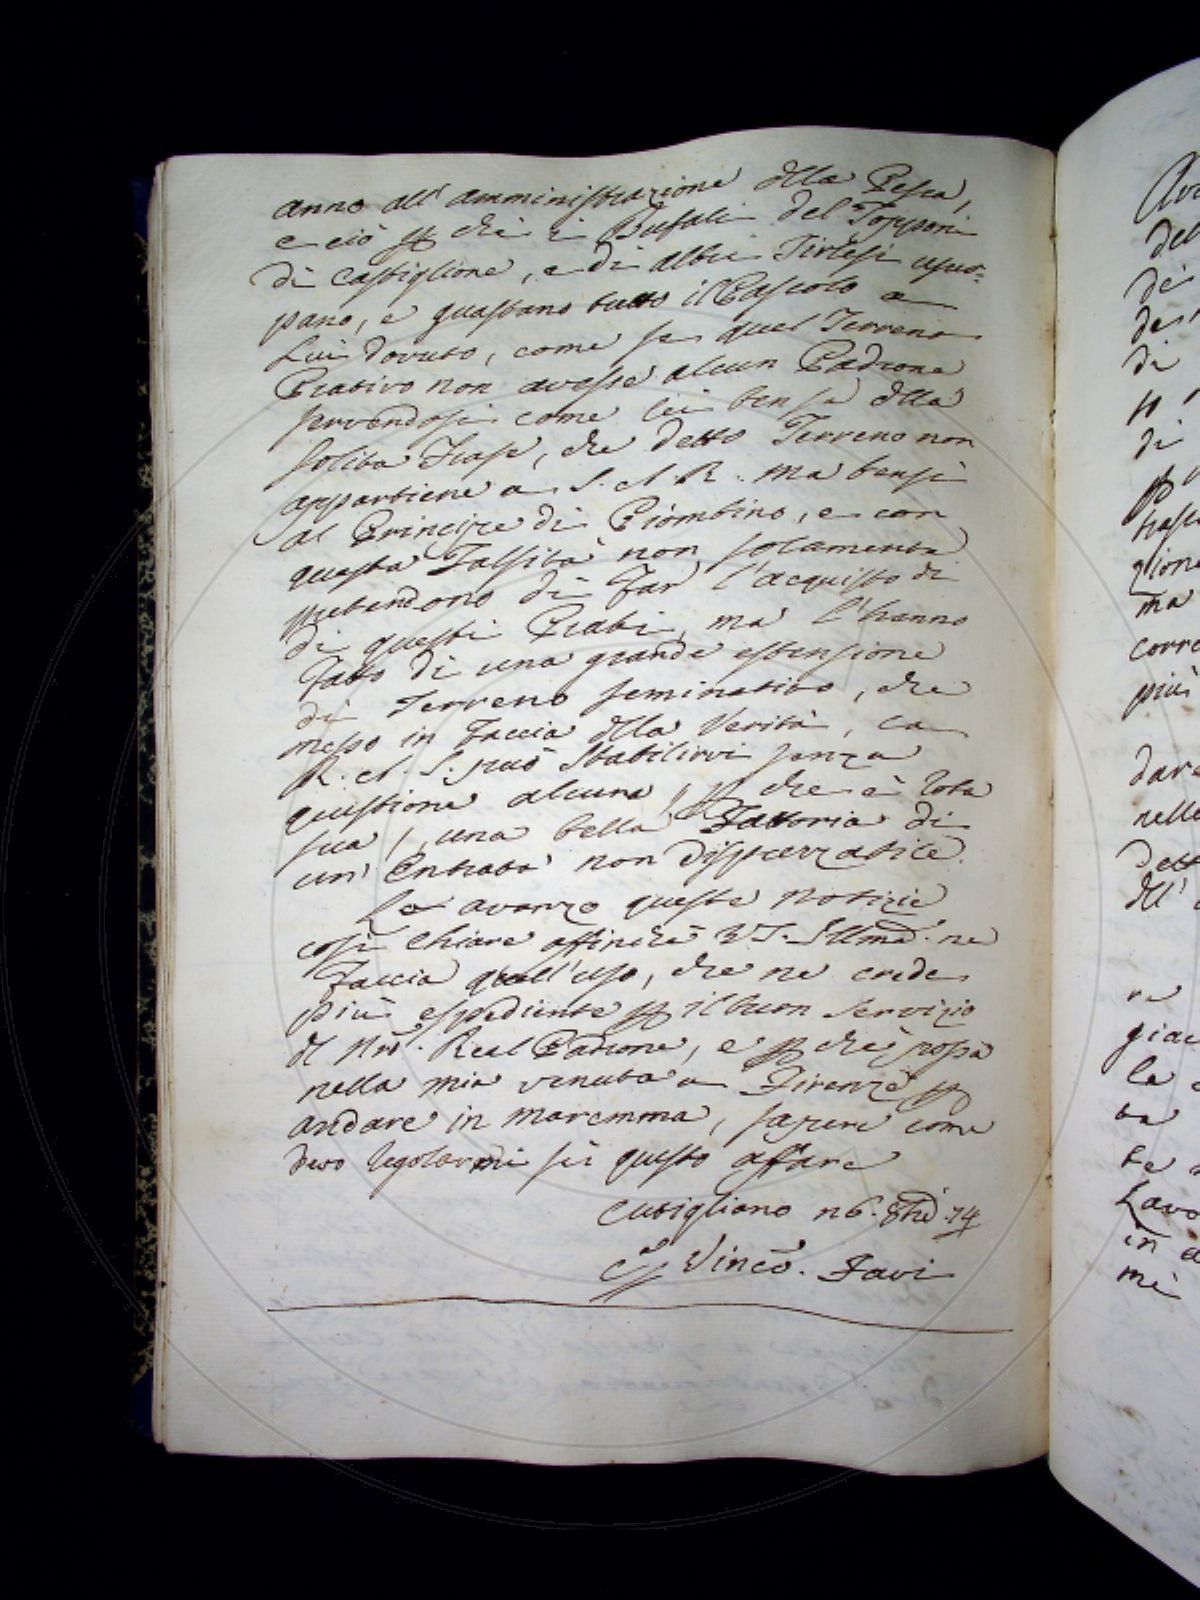 anno all' amministrazione dlla Pesca,
e ciò p che i Bufali del Topponi
di Castiglione, e di altri Tirlesi usur-
pano, e guastano tutto il Pascolo a
Lui dovuto, come se quel Terreno
Prativo non avesse alcun Padrone
servendosi come lei ben sà dlla
solita Frase, che detto Terreno non
appartiene a S. A. R. ma bensì
al Principe di Piombino, e con
questa Falsità non solamente
pretendono di Far l'acquisto di
di questi Prati, ma l'hanno
Fatto di una grande estensione
di Terreno seminativo, che
messo in Faccia dlla Verità, la
R. A. S. può stabilirvi senza
questione alcuna / p che è roba
sua / una bella Fattoria di
un' Entrata non disprezzabile.
Le avanzo queste notizie
così chiare affinchè VS. Illma. ne
Faccia quell'uso, che ne crede
più espediente p il buon servizio
dl Nro. Real Padrone, e p che possa
nella mia venuta a Firenze p
andare in Maremma, sapere come
devo regolarmi sù questo affare
Cutigliano n 6. 8bre 74
Vinco. Javi
Avv
del
de
des
di
di
p
hasc
glione
ma
corre
più
dar
nelle
dett
dll'
re
giac
la
ta
te
Lavo
in
mi